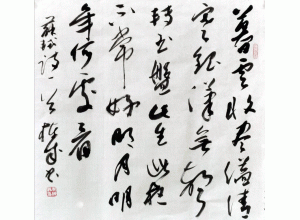 暮雲收盡溢清
寒銀漢無聲
轉玉盤此生此夜
不常好明月明
年何處看
蘇軾詩一首